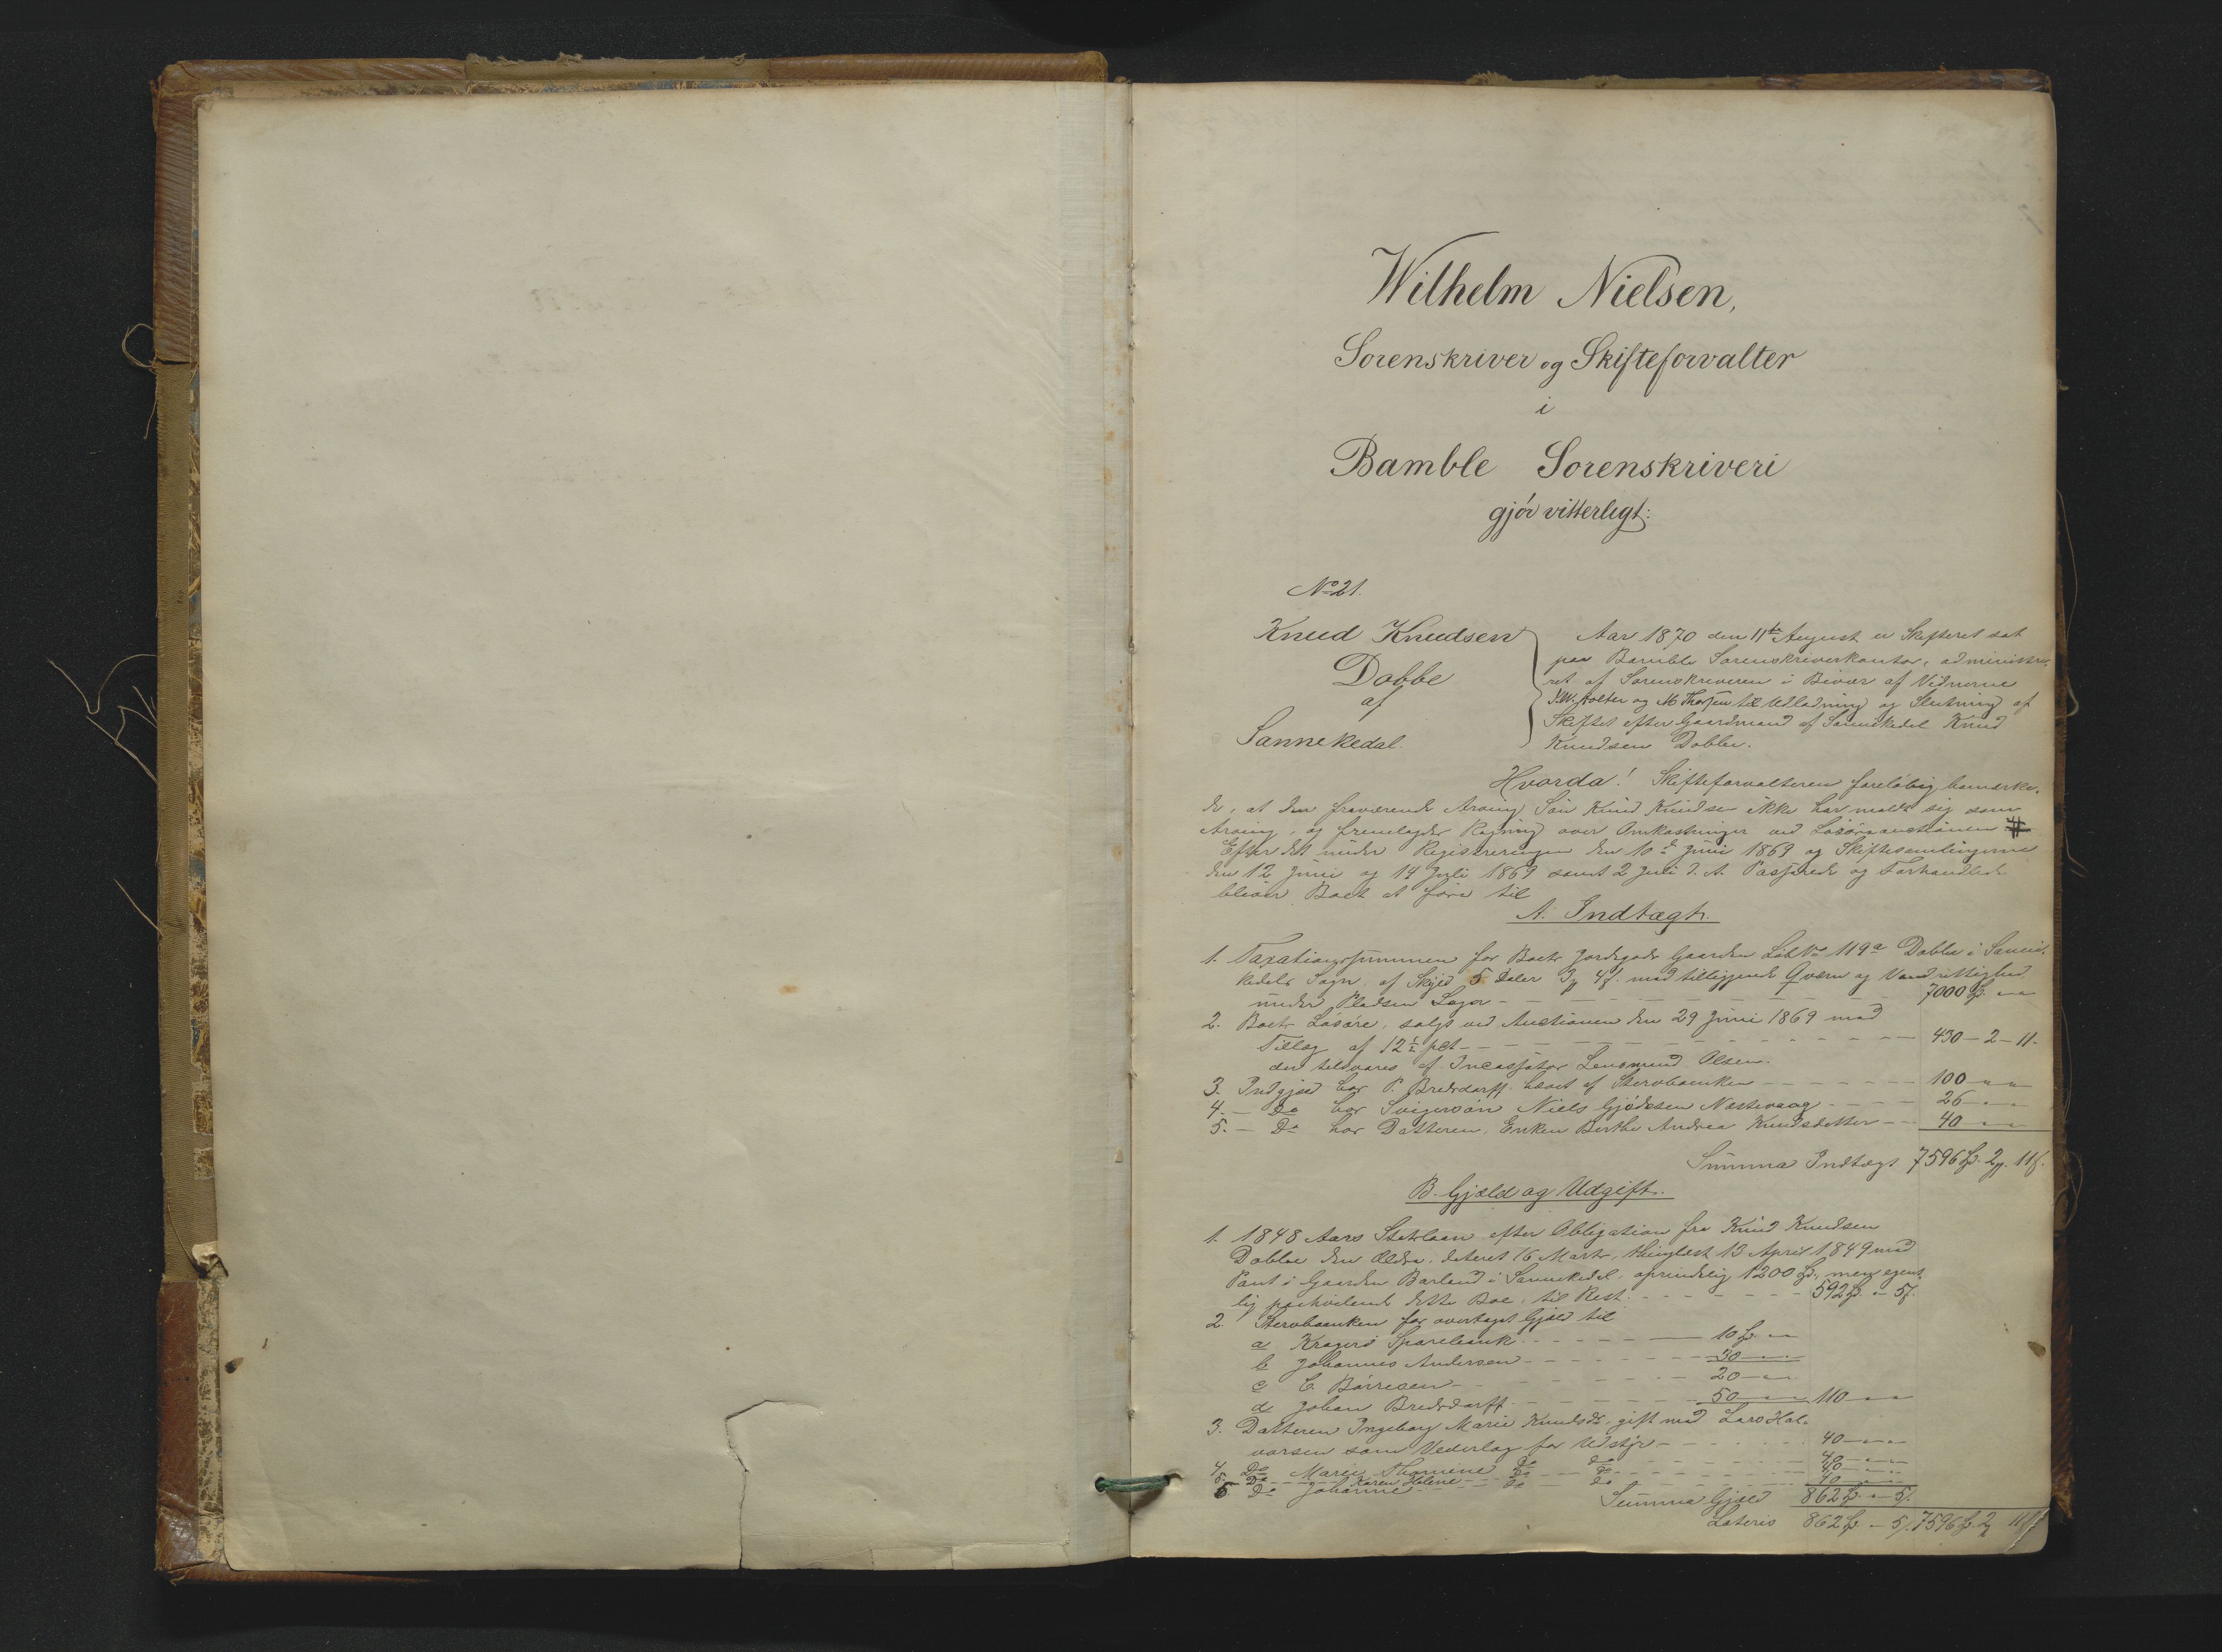 Wilhelm Nielsen,
Sorenskriver og Skifteforvalter
i
Bamble Sorenskriveri
gjör vitterligt:
No 21.
Knud Knudsen
Dobbe
af
Sannekedal.
Aar 1870 den 11te August er Skifteret sat
paa Bamble Sorenskriverkontor, administre-
ret af Sorenskriveren i Bivær af Vidnerne
og M Thorsen til Udlodning og Slutning af
Skiftet efter Gaardmand af Sannikedal Knud
Knudsen Dobbe.
Hvorda! Skifteforvalteren foreløbig bemærke-
de, at den fraværende Arving Søn Knud Knudsen ikke har meldt sig som
Arving, og fremlagde Regning over Omkostninger ved Løsøreauctionen #
Efter det under Registreringen den 10de Juni 1869 og Skiftesamlingerne
den 12 Juni og 14 Juli 1869 samt 2 Juli d. A. Passerede og Forhandlede
bliver Boet at føre til
A. Indtægt.
1. Taxationssummen for Boets Jordegods Gaarden Löb No 119a Dobbe i Sanni-
kedals Sogn, af Skyld 5 Daler 3 # 4 ß. med tilliggende Qværn og Vandrettighed
under Pladsen - - - 7000 Spd. " "
2. Boets Løsøre, solgt ved Auctionen den 29 Juni 1869 med
Tillæg af 12 ½ pCt - - - 430 - 2 - 11.
der tilsvares af Incassator Lensmand Olsen.
3. Indgjæld hos P. Bredsdorff hævet af Stervboenken - - - 100 " "
4. - Do hos Svigersøn Niels Gjødesen Næstevaag - - - 26 " "
5. - Do hos Datteren, Enken Berthe Andrea Knudsdatter - - 40 " "
Summa Indtægt 7596 Spd. 2 # 11 ß.
B. Gjæld og Udgift.
1. 1848 Aars Statslaan efter Obligation fra Knud Knudsen
Dobbe den Ældre, dateret 16 Marts, thinglæst 13 April 1849 med
Pant i Gaarden Barland i Sannikedal, oprindelig 1200 Spd., men egent-
lig paahvilende dette Boe, til Rest. - - - 592 Spd. " 5 ß.
2. Stervboenken for overtaget Gjæld til
a Kragerö Sparebank - - - 10 Spd. " "
b Johannes Andersen - - - 30 " "
c C. Börresen - - - 20 " "
d Johan Bredsdorff - - - 50 " " 110 " "
3. Datteren Ingeborg Marie Knudsdr. gift med Lars Hal-
vorsen som Vederlag for Udstyr - - - 40 " "
4. Do Marie Thomine Do Do - - - 40 " "
5. Do Karen Helene Do Do - - - 40 " "
6 Do Johanne Do Do - - - 40 " "
Summa Gjæld 862 Spd. " 5 ß.
Lateris 862 Spd - 5 ß. 7596 Spd. 2 # 11 ß